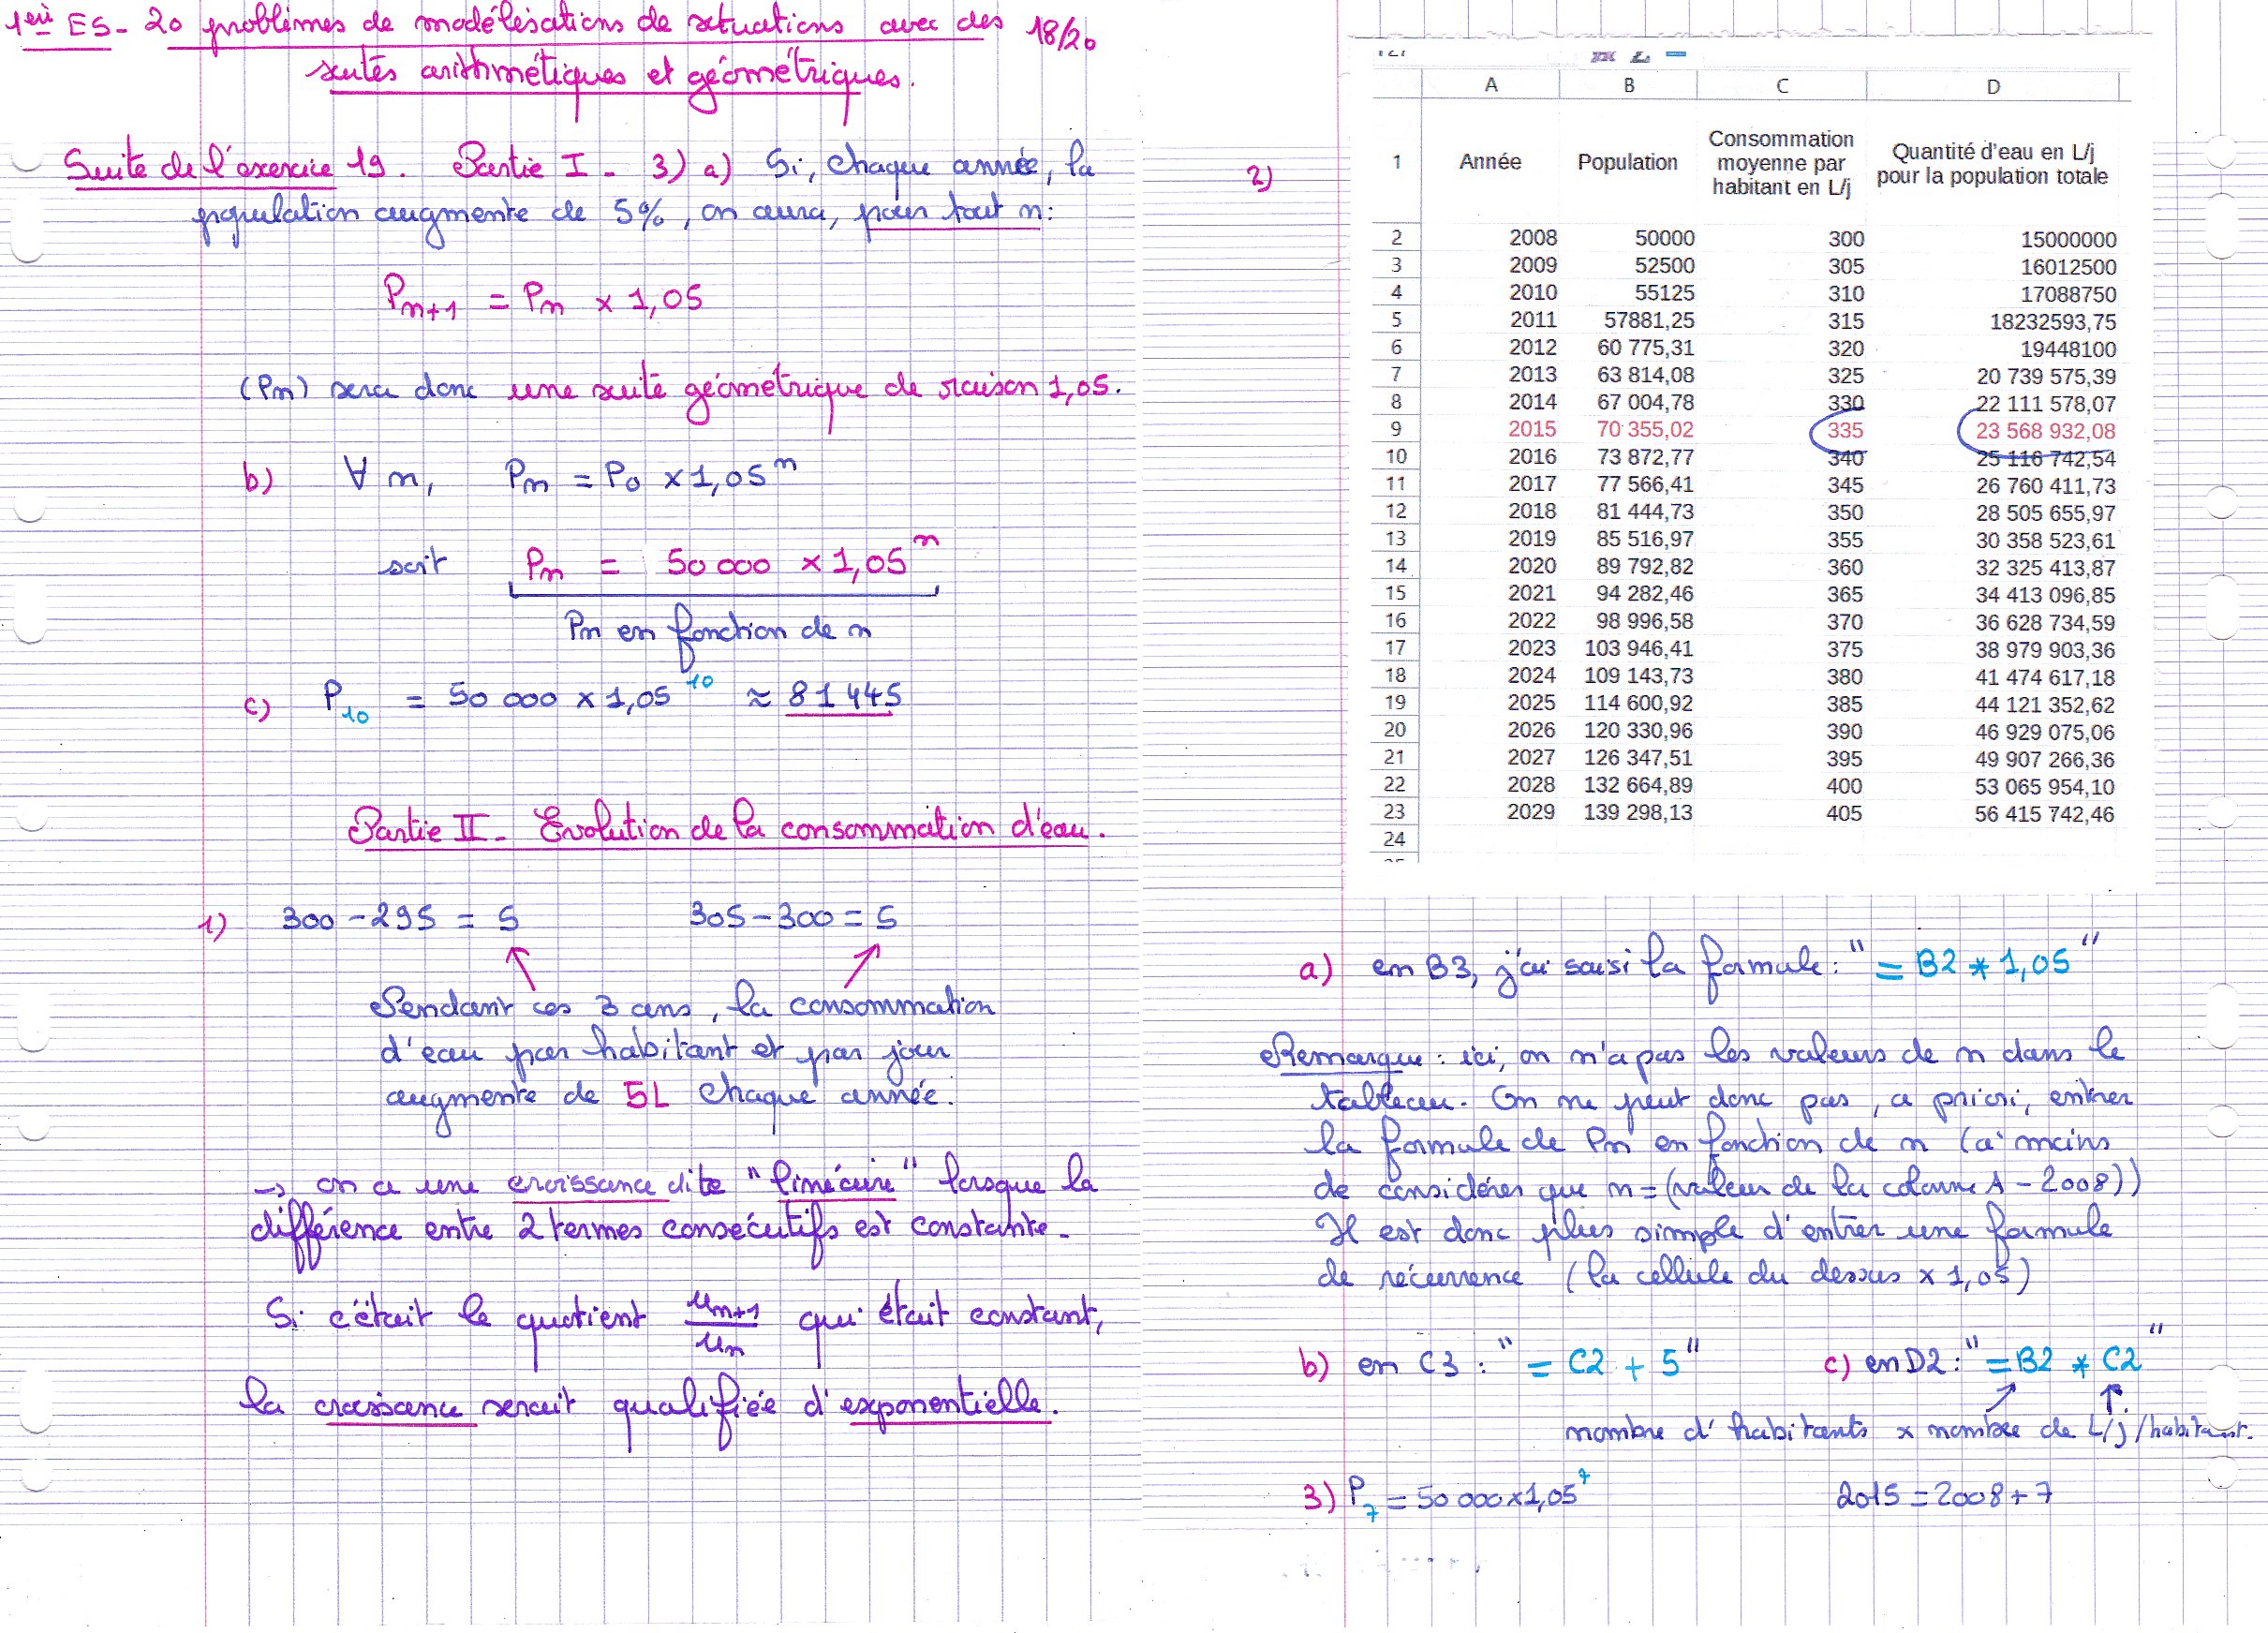 1ère ES - 20 problèmes de modélisations de situations avec des 18/20
suites arithmétiques et géométriques.
Suite de l'exercice 19. Partie I - 3) a) Si, chaque année, la
population augmente de 5%, on aura, pour tout n:
Pn+1 = Pn × 1,05
(Pn) sera donc une suite géométrique de raison 1,05.
b) ∀ n, Pn = P0 × 1,05^n
soit Pn = 50 000 × 1,05^n
Pn en fonction de n
c) P10 = 50 000 × 1,05^10 ≈ 81 445
Partie II - Evolution de la consommation d'eau.
1) 300 - 295 = 5 305 - 300 = 5
Pendant ces 3 ans, la consommation
d'eau par habitant et par jour
augmente de 5L chaque année.
→ on a une croissance dite "linéaire" lorsque la
différence entre 2 termes consécutifs est constante.
Si c'était le quotient un+1/un qui était constant,
la croissance serait qualifiée d'exponentielle.
2)
A B C D
1 Année Population Consommation moyenne par habitant en L/j Quantité d'eau en L/j pour la population totale
2 2008 50000 300 15000000
3 2009 52500 305 16012500
4 2010 55125 310 17088750
5 2011 57881,25 315 18232593,75
6 2012 60 775,31 320 19448100
7 2013 63 814,08 325 20 739 575,39
8 2014 67 004,78 330 22 111 578,07
9 2015 70 355,02 335 23 568 932,08
10 2016 73 872,77 340 25 116 742,54
11 2017 77 566,41 345 26 760 411,73
12 2018 81 444,73 350 28 505 655,97
13 2019 85 516,97 355 30 358 523,61
14 2020 89 792,82 360 32 325 413,87
15 2021 94 282,46 365 34 413 096,85
16 2022 98 996,58 370 36 628 734,59
17 2023 103 946,41 375 38 979 903,36
18 2024 109 143,73 380 41 474 617,18
19 2025 114 600,92 385 44 121 352,62
20 2026 120 330,96 390 46 929 075,06
21 2027 126 347,51 395 49 907 266,36
22 2028 132 664,89 400 53 065 954,10
23 2029 139 298,13 405 56 415 742,46
24
a) en B3, j'ai saisi la formule : "= B2 * 1,05"
Remarque : ici, on n'a pas les valeurs de n dans le
tableau. On ne peut donc pas, a priori, entrer
la formule de Pn en fonction de n (à moins
de considérer que n = (valeur de la colonne A - 2008))
Il est donc plus simple d'entrer une formule
de récurrence (la cellule du dessus × 1,05)
b) en C3 : "= C2 + 5" c) en D2 : "= B2 * C2"
nombre d'habitants × nombre de L/j/habitant.
3) P7 = 50 000 × 1,05^7 2015 = 2008 + 7